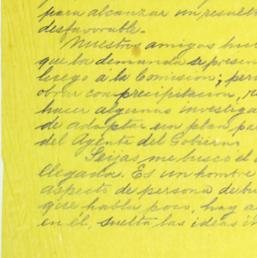 para alcanzar un result
desfavorable.
Nuestro amigos hub
que la demanda se presen
luego a la Comisión; per
obrar con precipitacion,
hacer algunas investiga
de adoptar un plan pa
del Agente del Gobierno
Seijas me busco el
llegada. Es un hombre
aspecto de persona de bu
que habla poco, hay a
en él, suelta las ideas in